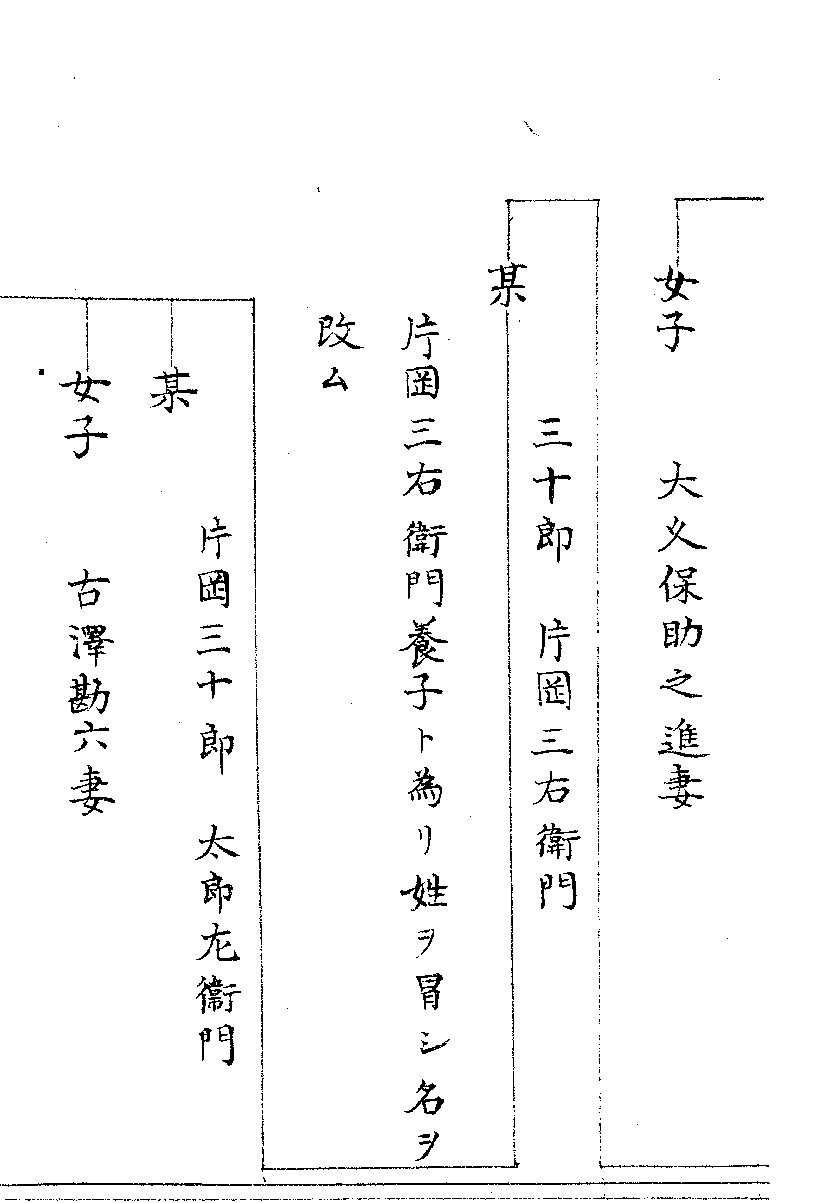 女子 大久保助之進妻
三十郎 片岡三右衛門
某
片岡三右衛門養子ト為リ姓ヲ冒シ名ヲ
改ム
片岡三十郎 太郎左衛門
某
女子 古澤勘六妻